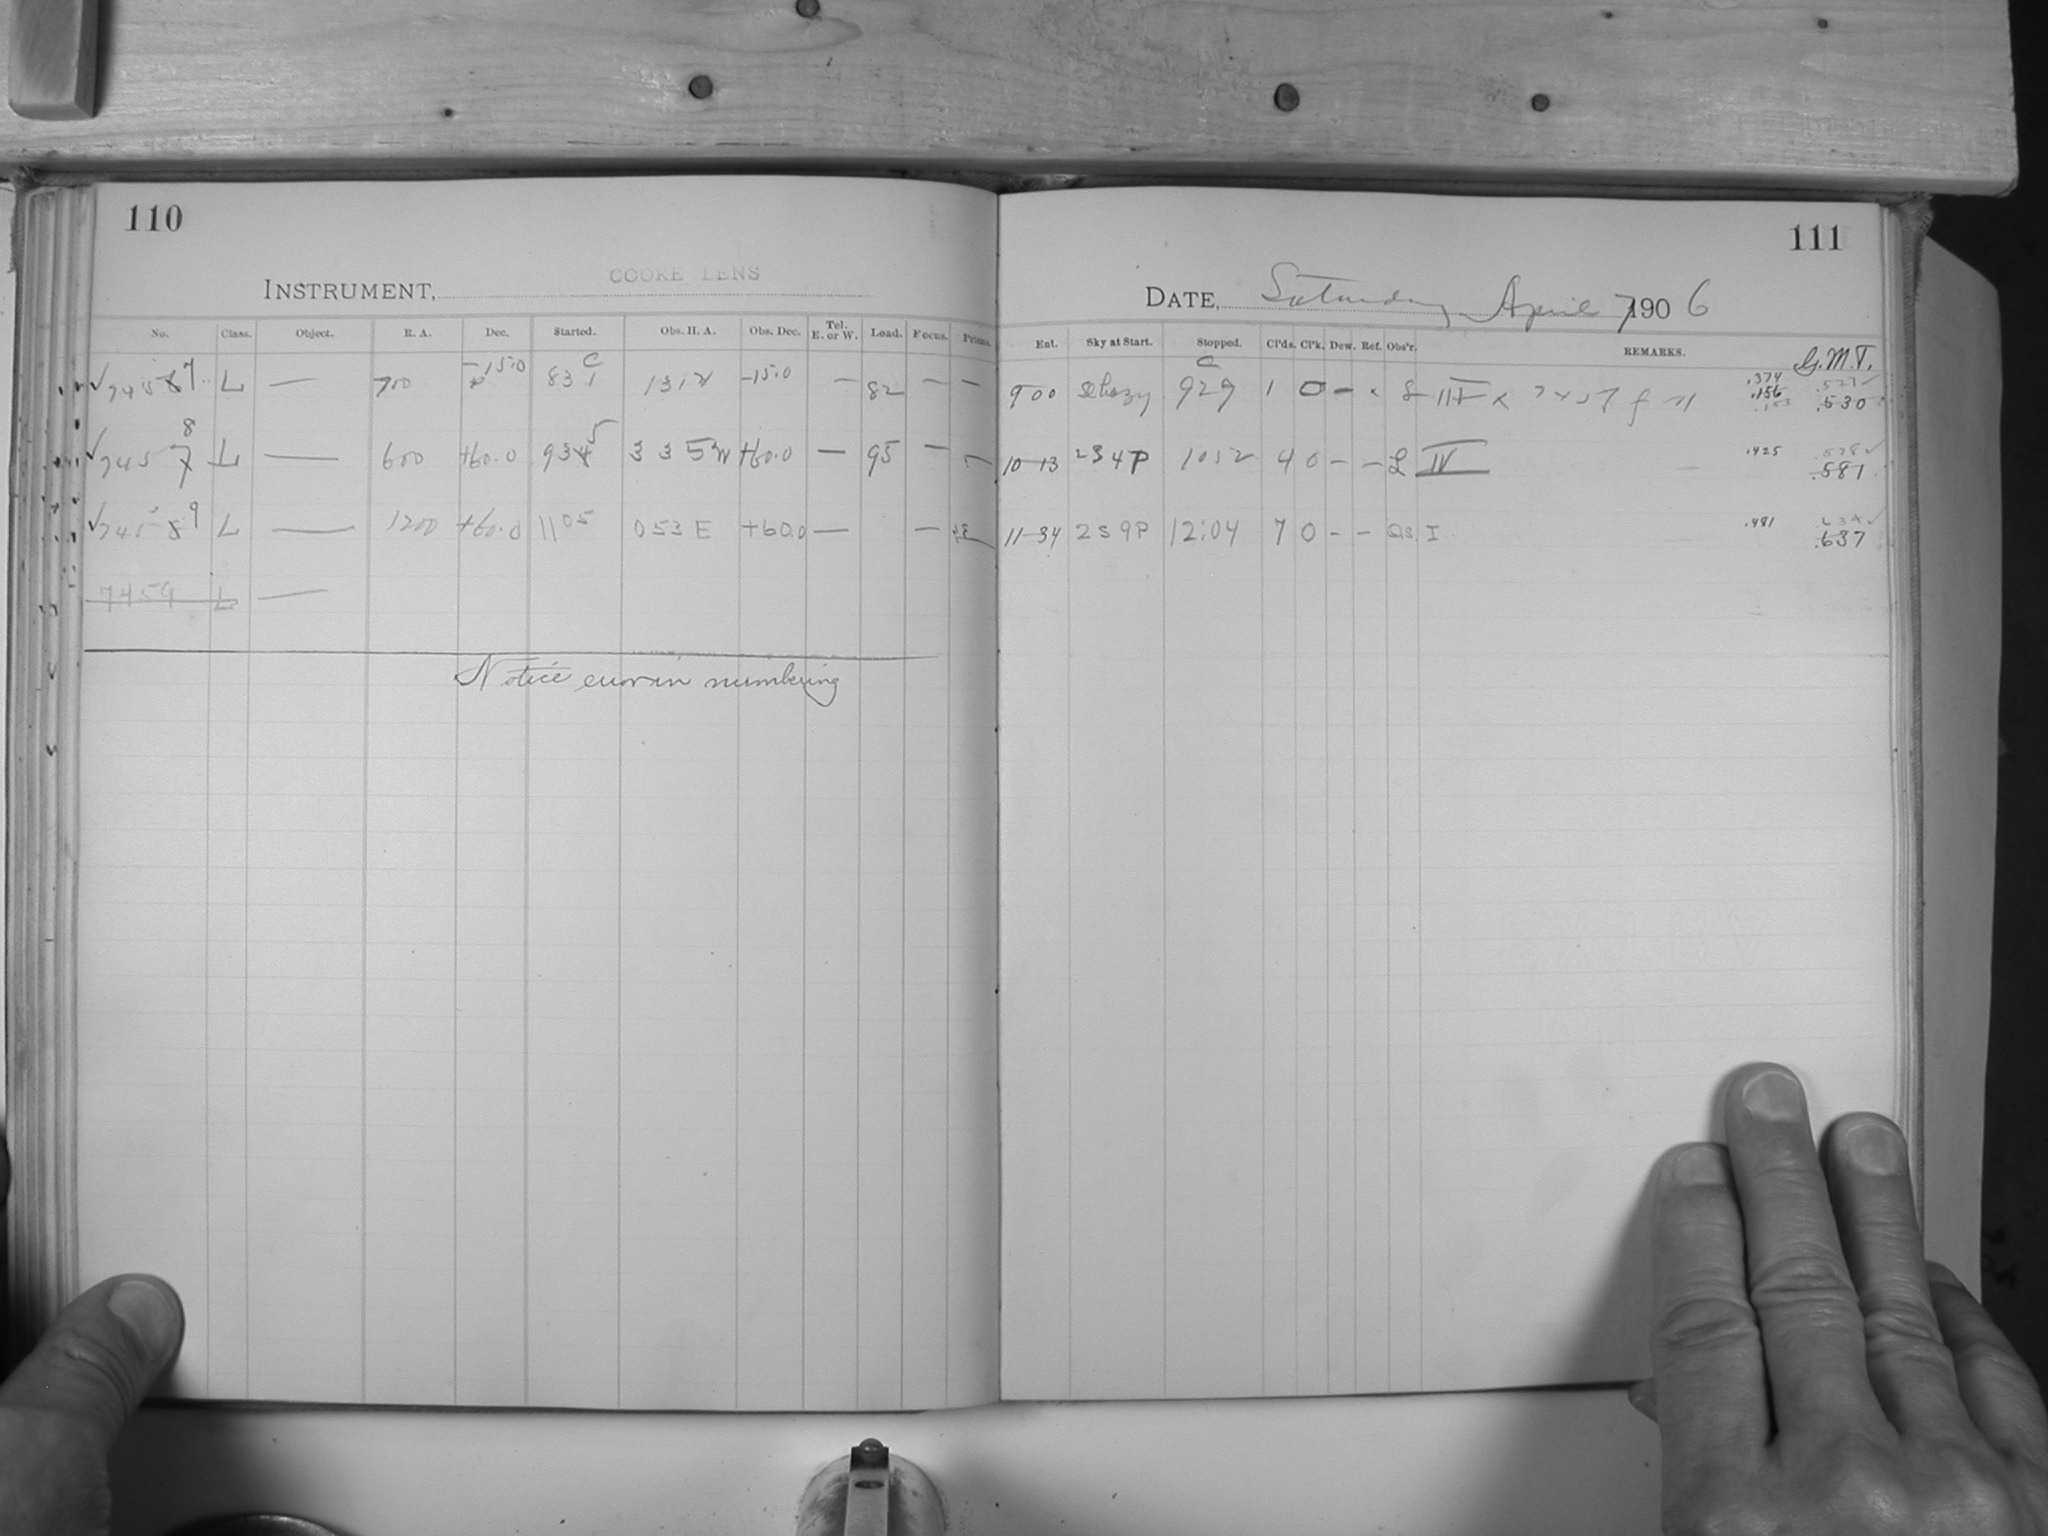 110
COOKE LENS
INSTRUMENT,
No. Class. Object. R. A. Dec. Started. Obs. H. A. Obs. Dec. Tel. E. or W. Load. Focus. Prisms.
√ 7457 L — 700 -15.0 83 -15.0 — 82 — —
8
√ 7457 L — 600 +60.0 934 5 335W +60.0 — 95 —
√ 7458 9 L — 1200 +60.0 1105 053E +60.0 — —
7459 L —
Notice error in numbering
111
DATE, Saturday April 7 1906
Ent. Sky at Start. Stopped. Cl'ds. Cl'k. Dew. Ref. Obs'r. REMARKS. G.M.T.
900 929 1 0 - III .374 .156 .530
10-13 234P 1052 4 0 - - L IV — .425 .581
11-34 259P 12:04 7 0 - - I — .481 .637